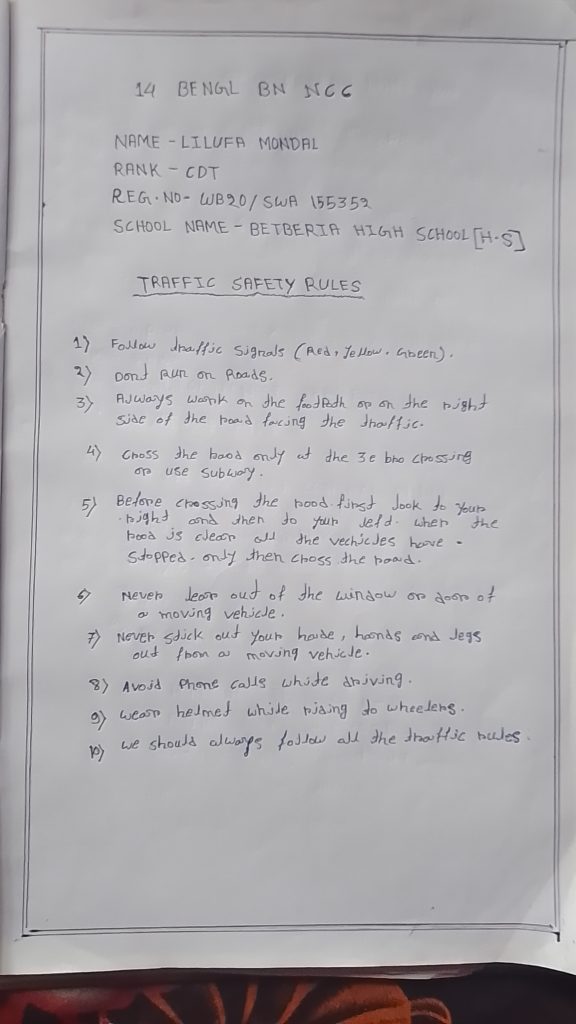 14 BENGL BN NCC
NAME - LILUFA MONDAL
RANK - CDT
REG. NO- WB20/SWA 155352
SCHOOL NAME - BETBERIA HIGH SCHOOL [H-S]
TRAFFIC SAFETY RULES
1) Follow traffic signals (Red, Yellow, Green).
2) Dont Run on Roads.
3) Always work on the on the right
side of the road facing the traffic.
4) Cross the road only at the crossing
or use subway.
5) Before crossing the road first look to your
right and then to your left. when the
road is clear all the vechicles have -
stopped. only then cross the road.
6) Never lean out of the window or door of
a moving vehicle.
7) Never stick out your hands and legs
out from a moving vehicle.
8) Avoid Phone calls while driving.
9) wear helmet while riding to wheelers.
10) we should always follow all the traffic rules.